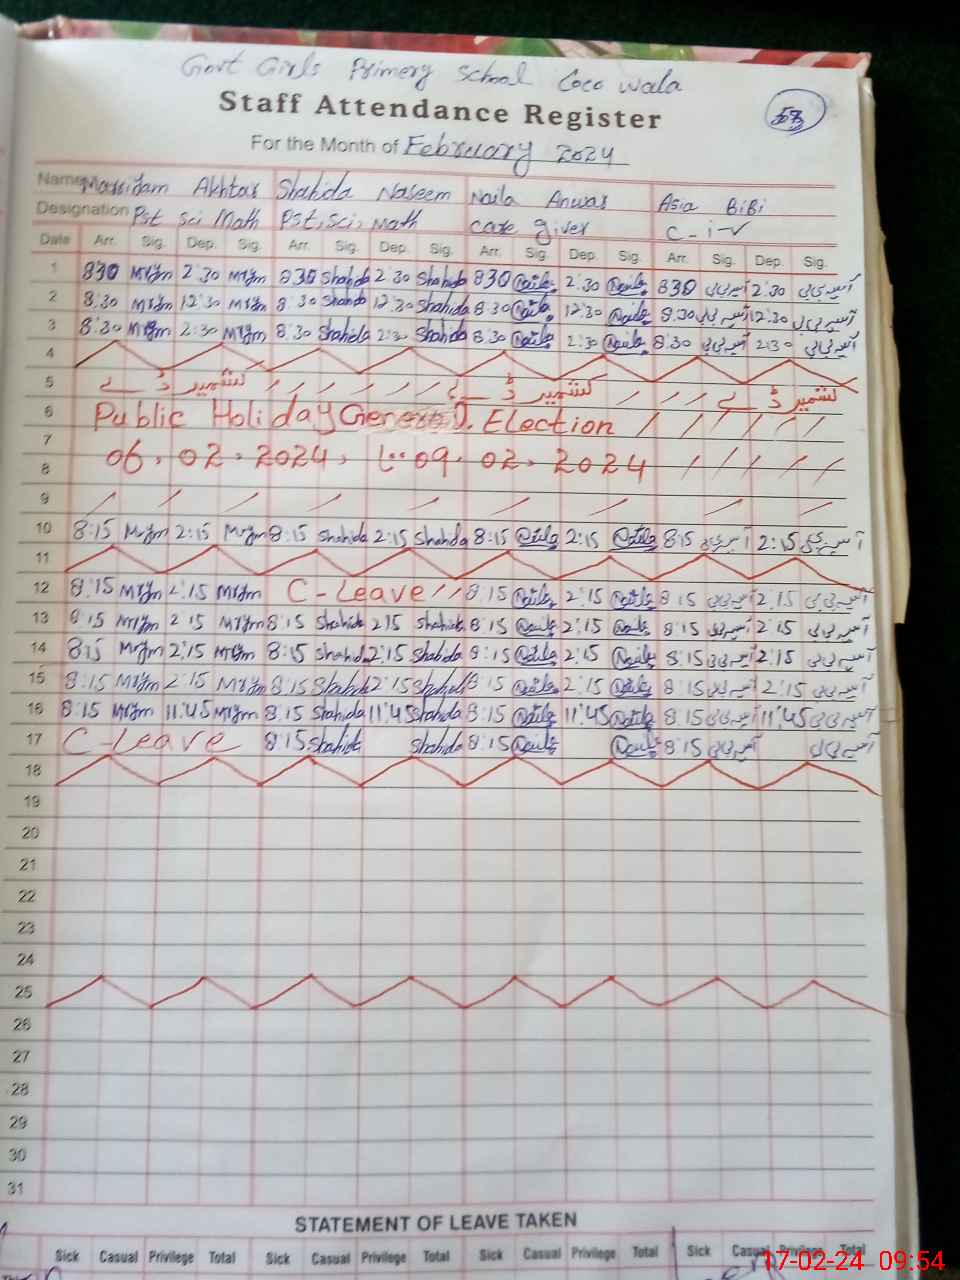 Govt Girls Primery School Coco wala
Staff Attendance Register
For the Month of February 2024
Name Marriyam Akhtar Shahida Naseem Naila Anwar Asia BiBi
Designation Pst Sci Math Pst, Sci, Math Care giver C-i-V
Date Arr. Sig. Dep. Sig. Arr. Sig. Dep. Sig. Arr. Sig. Dep. Sig. Arr. Sig. Dep. Sig.
1 830 Mrym 2:30 Mrym 830 Shahida 2:30 Shahida 830 Naila 2:30 Naila 830 آسیہ بی بی 2:30 آسیہ بی بی
2 8:30 Mrym 12:30 Mrym 8:30 Shahida 12:30 Shahida 8:30 Naila 12:30 Naila 8:30 آسیہ بی بی 12:30 آسیہ بی بی
3 8:30 Mrym 2:30 Mrym 8:30 Shahida 2:30 Shahida 8:30 Naila 2:30 Naila 8:30 آسیہ بی بی 2:30 آسیہ بی بی
4
5 کشمیر ڈے کشمیر ڈے کشمیر ڈے
6 Public Holiday General Election
7
8 06.02.2024. to 09.02.2024
9
10 8:15 Mrym 2:15 Mrym 8:15 Shahida 2:15 Shahida 8:15 Naila 2:15 Naila 8:15 آسیہ بی بی 2:15 آسیہ بی بی
11
12 8:15 Mrym 2:15 Mrym C-Leave 8:15 Naila 2:15 Naila 8:15 آسیہ بی بی 2:15 آسیہ بی بی
13 8:15 Mrym 2:15 Mrym 8:15 Shahida 2:15 Shahida 8:15 Naila 2:15 Naila 8:15 آسیہ بی بی 2:15 آسیہ بی بی
14 8:15 Mrym 2:15 Mrym 8:15 Shahida 2:15 Shahida 8:15 Naila 2:15 Naila 8:15 آسیہ بی بی 2:15 آسیہ بی بی
15 8:15 Mrym 2:15 Mrym 8:15 Shahida 2:15 Shahida 8:15 Naila 2:15 Naila 8:15 آسیہ بی بی 2:15 آسیہ بی بی
16 8:15 Mrym 11:45 Mrym 8:15 Shahida 11:45 Shahida 8:15 Naila 11:45 Naila 8:15 آسیہ بی بی 11:45 آسیہ بی بی
17 C-Leave 8:15 Shahida Shahida 8:15 Naila Naila 8:15 آسیہ بی بی آسیہ بی بی
18
19
20
21
22
23
24
25
26
27
28
29
30
31
STATEMENT OF LEAVE TAKEN
Sick Casual Privilege Total Sick Casual Privilege Total Sick Casual Privilege Total Sick Casual Privilege Total
17-02-24 09:54